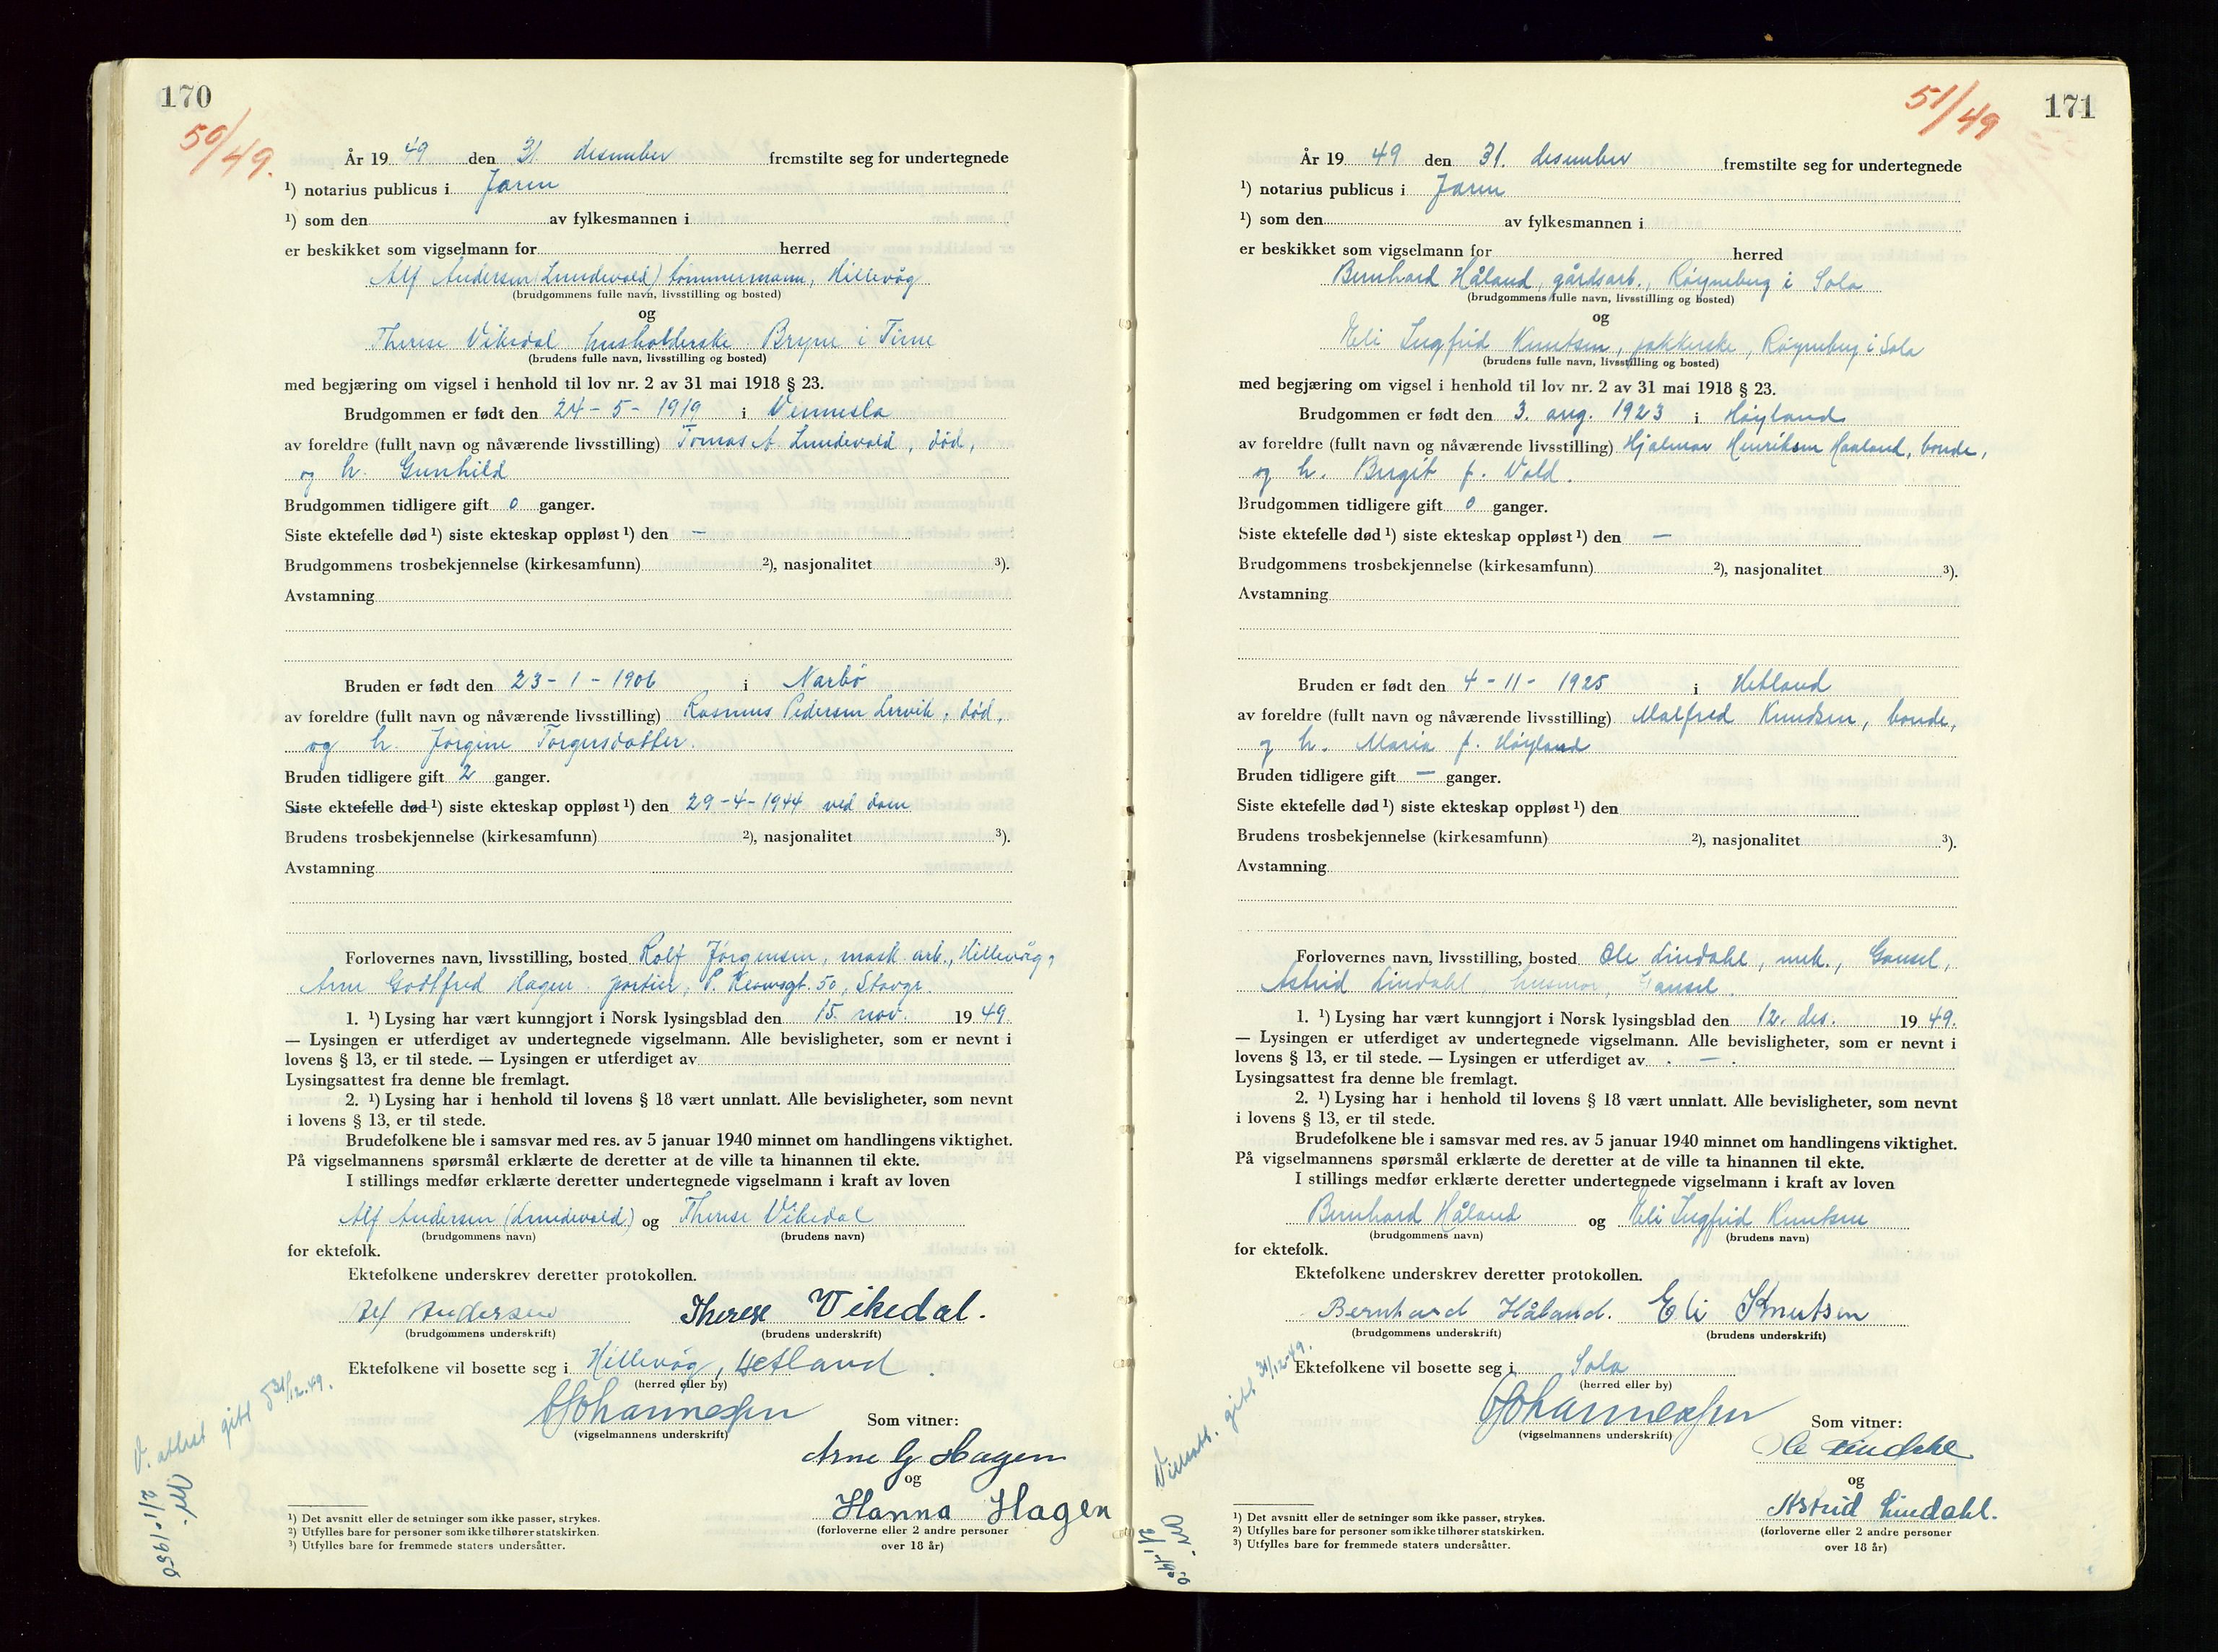 170
50/49.
År 19 49 den 31. desember fremstilte seg for undertegnede
¹) notarius publicus i Jæren
¹) som den av fylkesmannen i
er beskikket som vigselmann for herred
Alf Andersen (Lundevold) tømmermann, Hillevåg
(brudgommens fulle navn, livsstilling og bosted)
og
Therese Vikedal husholderske Bryne i Time
(brudens fulle navn, livsstilling og bosted)
med begjæring om vigsel i henhold til lov nr. 2 av 31 mai 1918 § 23.
Brudgommen er født den 24 - 5 - 1919 i Vennesla
av foreldre (fullt navn og nåværende livsstilling) Tomas A. Lundevold, død,
og h. Gunhild
Brudgommen tidligere gift 0 ganger.
Siste ektefelle død ¹) siste ekteskap oppløst ¹) den —
Brudgommens trosbekjennelse (kirkesamfunn) ²), nasjonalitet ³).
Avstamning
Bruden er født den 23 - 1 - 1906 i Narbø
av foreldre (fullt navn og nåværende livsstilling) Rasmus Pedersen Lervik, død,
og h. Jørgine Torgersdatter.
Bruden tidligere gift 2 ganger.
Siste ektefelle død ¹) siste ekteskap oppløst ¹) den 29-4-1944 ved dom
Brudens trosbekjennelse (kirkesamfunn) ²), nasjonalitet ³).
Avstamning
Forlovernes navn, livsstilling, bosted Rolf Jørgensen, mask. arb., Hillevåg,
Arne Godtfred Hagen portier, P. gt. 50, Stavgr.
1. ¹) Lysing har vært kunngjort i Norsk lysingsblad den 15. nov. 19 49.
— Lysingen er utferdiget av undertegnede vigselmann. Alle bevisligheter, som er nevnt i
lovens § 13, er til stede. — Lysingen er utferdiget av
Lysingsattest fra denne ble fremlagt.
2. ¹) Lysing har i henhold til lovens § 18 vært unnlatt. Alle bevisligheter, som nevnt
i lovens § 13, er til stede.
Brudefolkene ble i samsvar med res. av 5 januar 1940 minnet om handlingens viktighet.
På vigselmannens spørsmål erklærte de deretter at de ville ta hinannen til ekte.
I stillings medfør erklærte deretter undertegnede vigselmann i kraft av loven
Alf Andersen (Lundevold) og Therese Vikedal
(brudgommens navn) (brudens navn)
for ektefolk.
Ektefolkene underskrev deretter protokollen.
Alf Andersen Therese Vikedal.
(brudgommens underskrift) (brudens underskrift)
Ektefolkene vil bosette seg i Hillevåg, Hetland.
(herred eller by)
Johannessen
(vigselmannens underskrift)
Som vitner:
Arne G Hagen
og
Hanna Hagen
(forloverne eller 2 andre personer
over 18 år)
V. attest gitt 31/12-49.
2/1-1950
¹) Det avsnitt eller de setninger som ikke passer, strykes.
²) Utfylles bare for personer som ikke tilhører statskirken.
³) Utfylles bare for fremmede staters undersåtter.
51/49
171
År 19 49 den 31. desember fremstilte seg for undertegnede
¹) notarius publicus i Jæren
¹) som den av fylkesmannen i
er beskikket som vigselmann for herred
Bernhard Håland, gårdsarb., Røyneberg i Sola
(brudgommens fulle navn, livsstilling og bosted)
og
Eli Ingfrid Knutsen, pakkerske, Røyneberg i Sola
(brudens fulle navn, livsstilling og bosted)
med begjæring om vigsel i henhold til lov nr. 2 av 31 mai 1918 § 23.
Brudgommen er født den 3. aug. 1923 i Høyland
av foreldre (fullt navn og nåværende livsstilling) Hjalmar Henriksen Haaland, bonde,
og h. Bergit f. Vold.
Brudgommen tidligere gift 0 ganger.
Siste ektefelle død ¹) siste ekteskap oppløst ¹) den —
Brudgommens trosbekjennelse (kirkesamfunn) ²), nasjonalitet ³).
Avstamning
Bruden er født den 4 - 11 - 1925 i Hetland
av foreldre (fullt navn og nåværende livsstilling) Malfred Knudsen, bonde,
og h. Maria f. Høyland
Bruden tidligere gift — ganger.
Siste ektefelle død ¹) siste ekteskap oppløst ¹) den
Brudens trosbekjennelse (kirkesamfunn) ²), nasjonalitet ³).
Avstamning
Forlovernes navn, livsstilling, bosted Ole Lindahl, mek., Gausel,
Astrid Lindahl, husmor, Gausel.
1. ¹) Lysing har vært kunngjort i Norsk lysingsblad den 12. des. 19 49.
— Lysingen er utferdiget av undertegnede vigselmann. Alle bevisligheter, som er nevnt i
lovens § 13, er til stede. — Lysingen er utferdiget av . — .
Lysingsattest fra denne ble fremlagt.
2. ¹) Lysing har i henhold til lovens § 18 vært unnlatt. Alle bevisligheter, som nevnt
i lovens § 13, er til stede.
Brudefolkene ble i samsvar med res. av 5 januar 1940 minnet om handlingens viktighet.
På vigselmannens spørsmål erklærte de deretter at de ville ta hinannen til ekte.
I stillings medfør erklærte deretter undertegnede vigselmann i kraft av loven
Bernhard Håland og Eli Ingfrid Knutsen
(brudgommens navn) (brudens navn)
for ektefolk.
Ektefolkene underskrev deretter protokollen.
Bernhard Håland. Eli Knutsen
(brudgommens underskrift) (brudens underskrift)
Ektefolkene vil bosette seg i Sola
(herred eller by)
Johannessen
(vigselmannens underskrift)
Som vitner:
Ole Lindahl
og
Astrid Lindahl.
(forloverne eller 2 andre personer
over 18 år)
Vielsesatt. gitt 31/12-49.
¹) Det avsnitt eller de setninger som ikke passer, strykes.
²) Utfylles bare for personer som ikke tilhører statskirken.
³) Utfylles bare for fremmede staters undersåtter.